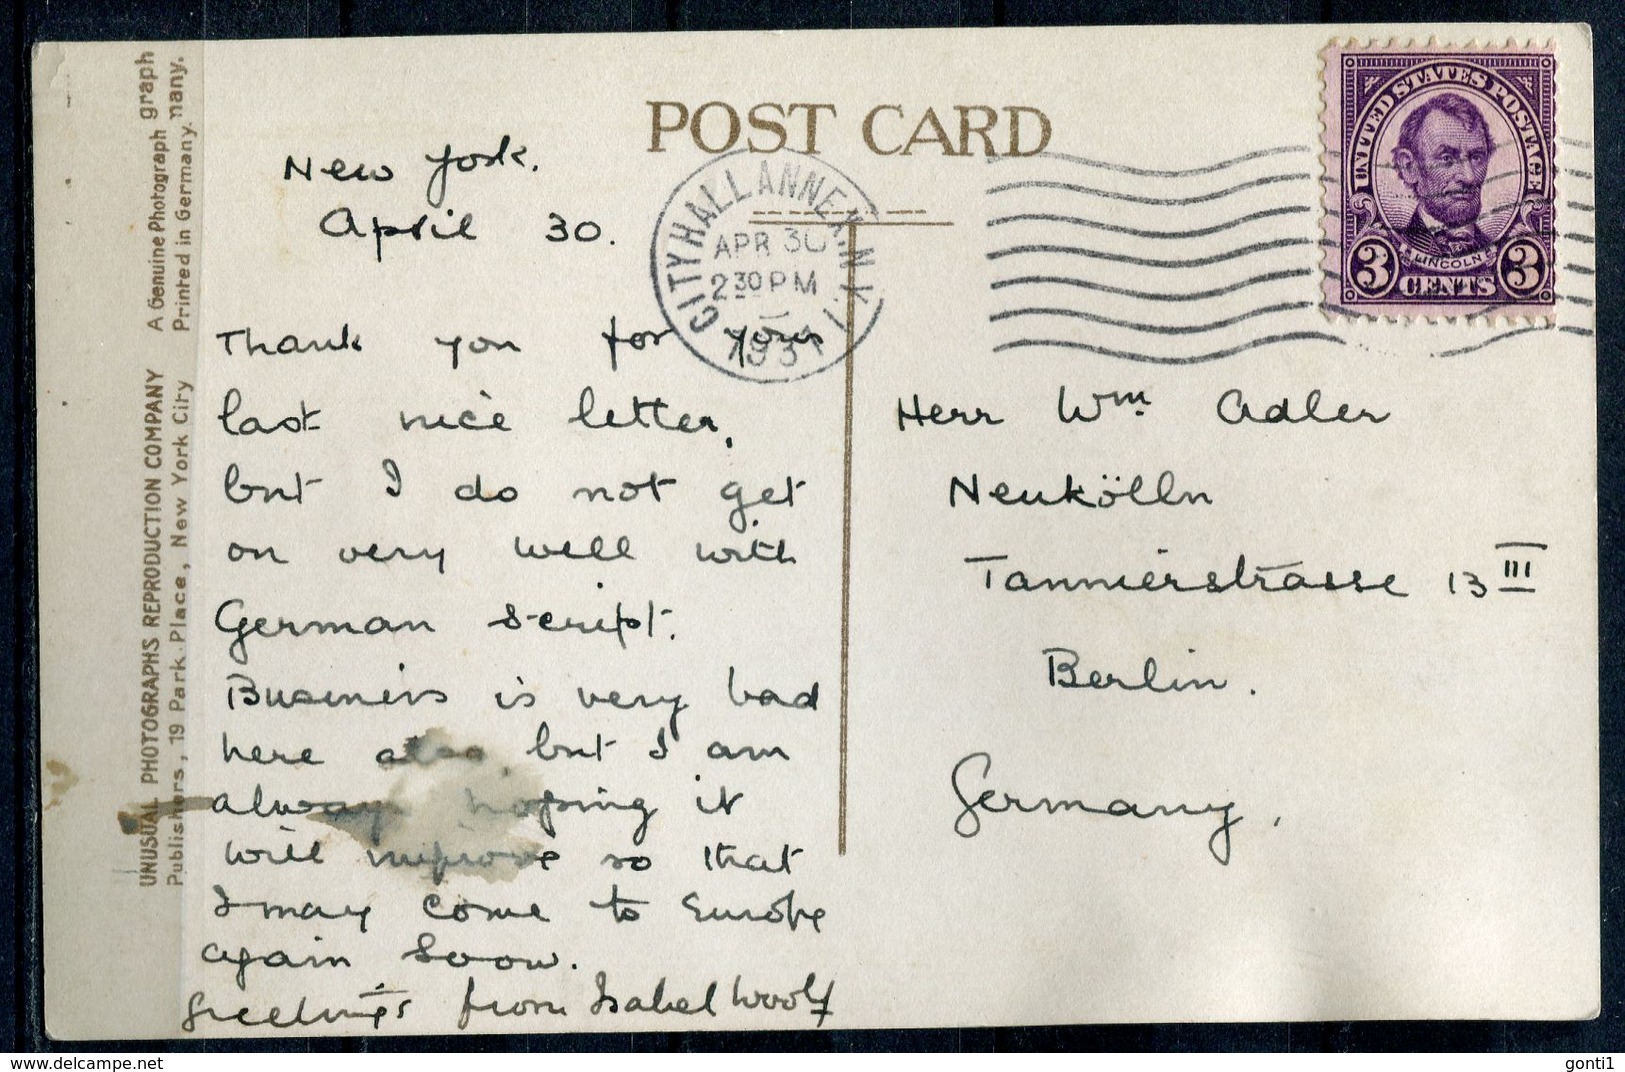 POST CARD
New York.
April 30.
Thank you for your
last nice letter,
but I do not get
on very well with
German script.
Business is very bad
here also, but I am
always hoping it
will improve so that
I may come to Europe
again soon.
Greetings from Isabel Woolf
Herr Wm Adler
Neukölln
Tannierstrasse 13 III
Berlin.
Germany.
CITY HALL ANNEX. N.Y. 1
APR 30
2 30 PM
1931
UNITED STATES POSTAGE
LINCOLN
3 CENTS 3
UNUSUAL PHOTOGRAPHS REPRODUCTION COMPANY A Genuine Photograph graph
Publishers, 19 Park Place, New York City Printed in Germany. many.
gonti1